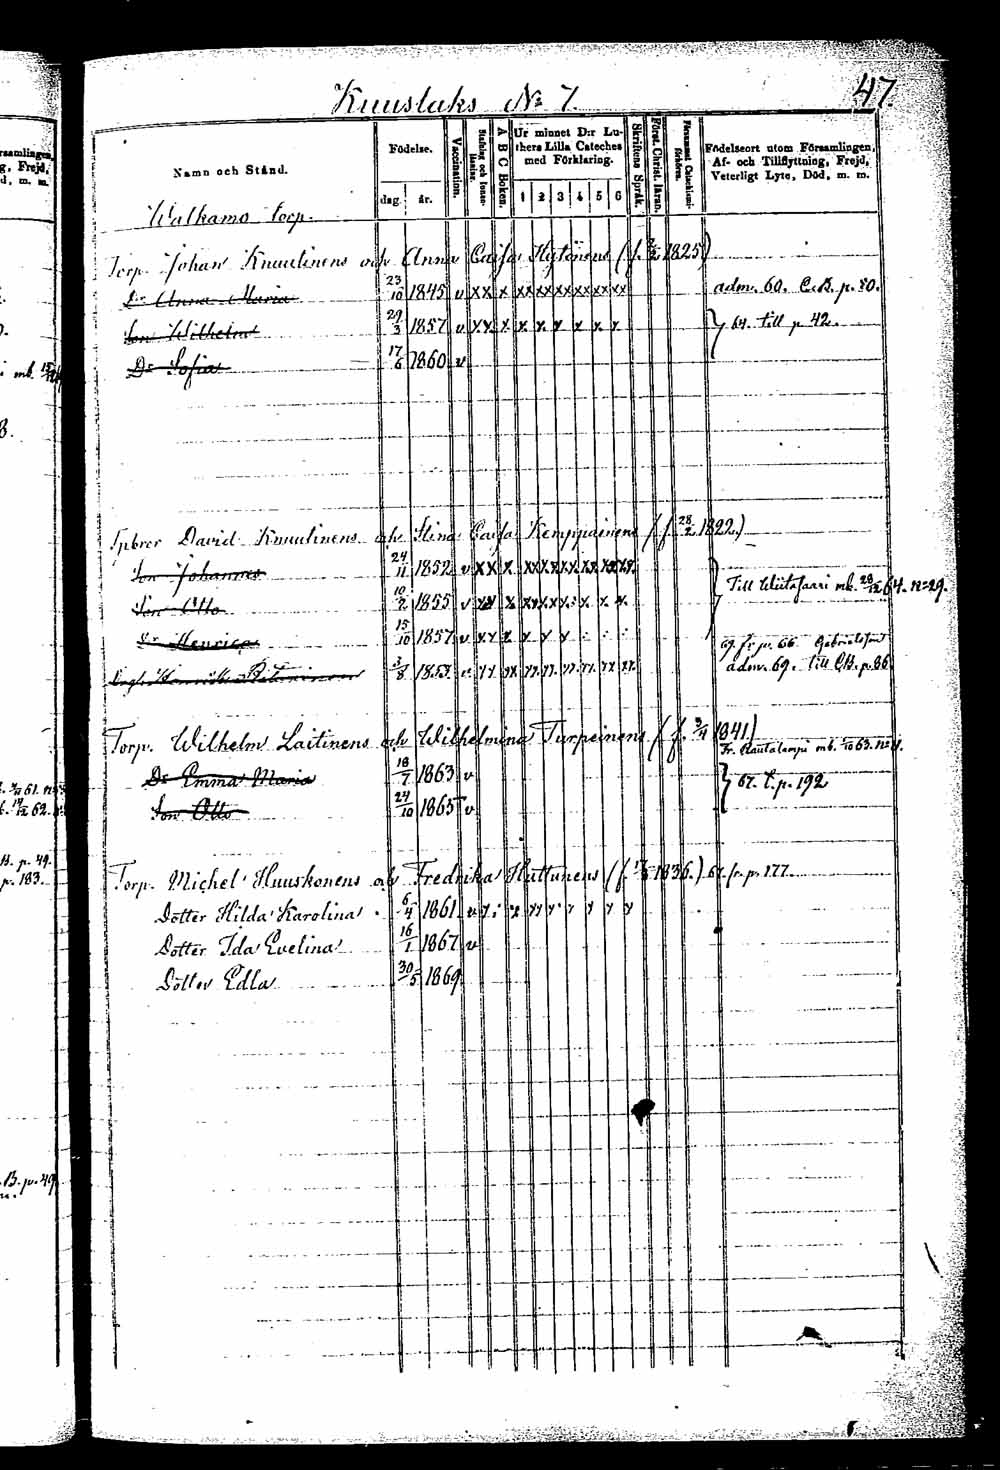 47.
Kuuslaks No 7.
Namn och Stånd.
Födelse.
dag. år.
Vaccination.
A B C Boken.
Ur minnet D:r Luthers Lilla Cateches med Förklaring.
1 2 3 4 5 6
Skriftens Språk.
Först. Christ. läran.
Födelseort utom Församlingen, Af- och Tillflyttning, Frejd, Veterligt Lyte, Död, m. m.
Walkamo torp.
Torp. Johan Knuutinens och Anna Caisa Hytönens (f. 1825)
Dr Anna Maria 23/10 1845 v xx x xx xx xx xx xx xx adm. 60. C.B. p. 80.
Son Wilhelm 29/3 1857 v xx x x x x x x x } 64. till p. 42.
Dr Sofia 17/6 1860 v
Tpbror David Knuutinens och Stina Caisa Kemppainens (f. 28/2 1822.)
Son Johannes 24/11 1852 v xx x xx xx xx xx xx xx Till Wiitasaari mb. 28/12 64. n=29.
Son Otto 10/2 1855 v
Dr Henrica 15/10 1857 v
69. fr. p. 66.
3/8 1853. adm. 69. Till C.B. p. 86
Torp. Wilhelm Laitinens och Wilhelmina Turpeinens (f. 3/4 1841)
Fr. Rautalampi mb.
Dr Emma Maria 18/7 1863 v } 67. t. p. 192
Son Otto 24/10 1865 v
Torp. Michel Huuskonens och Fredrika Huttunens (f. 1836.) 67. fr. p. 177.
Dotter Hilda Karolina 6/4 1861
Dotter Ida Evelina 16/1 1867 v
Dotter Edla 30/5 1869.